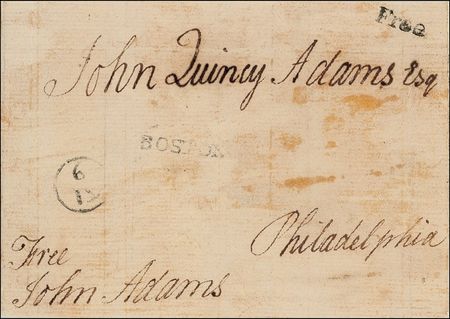 Free
John Quincy Adams Esq
BOSTON
6
IY
Philadelphia
Free
John Adams